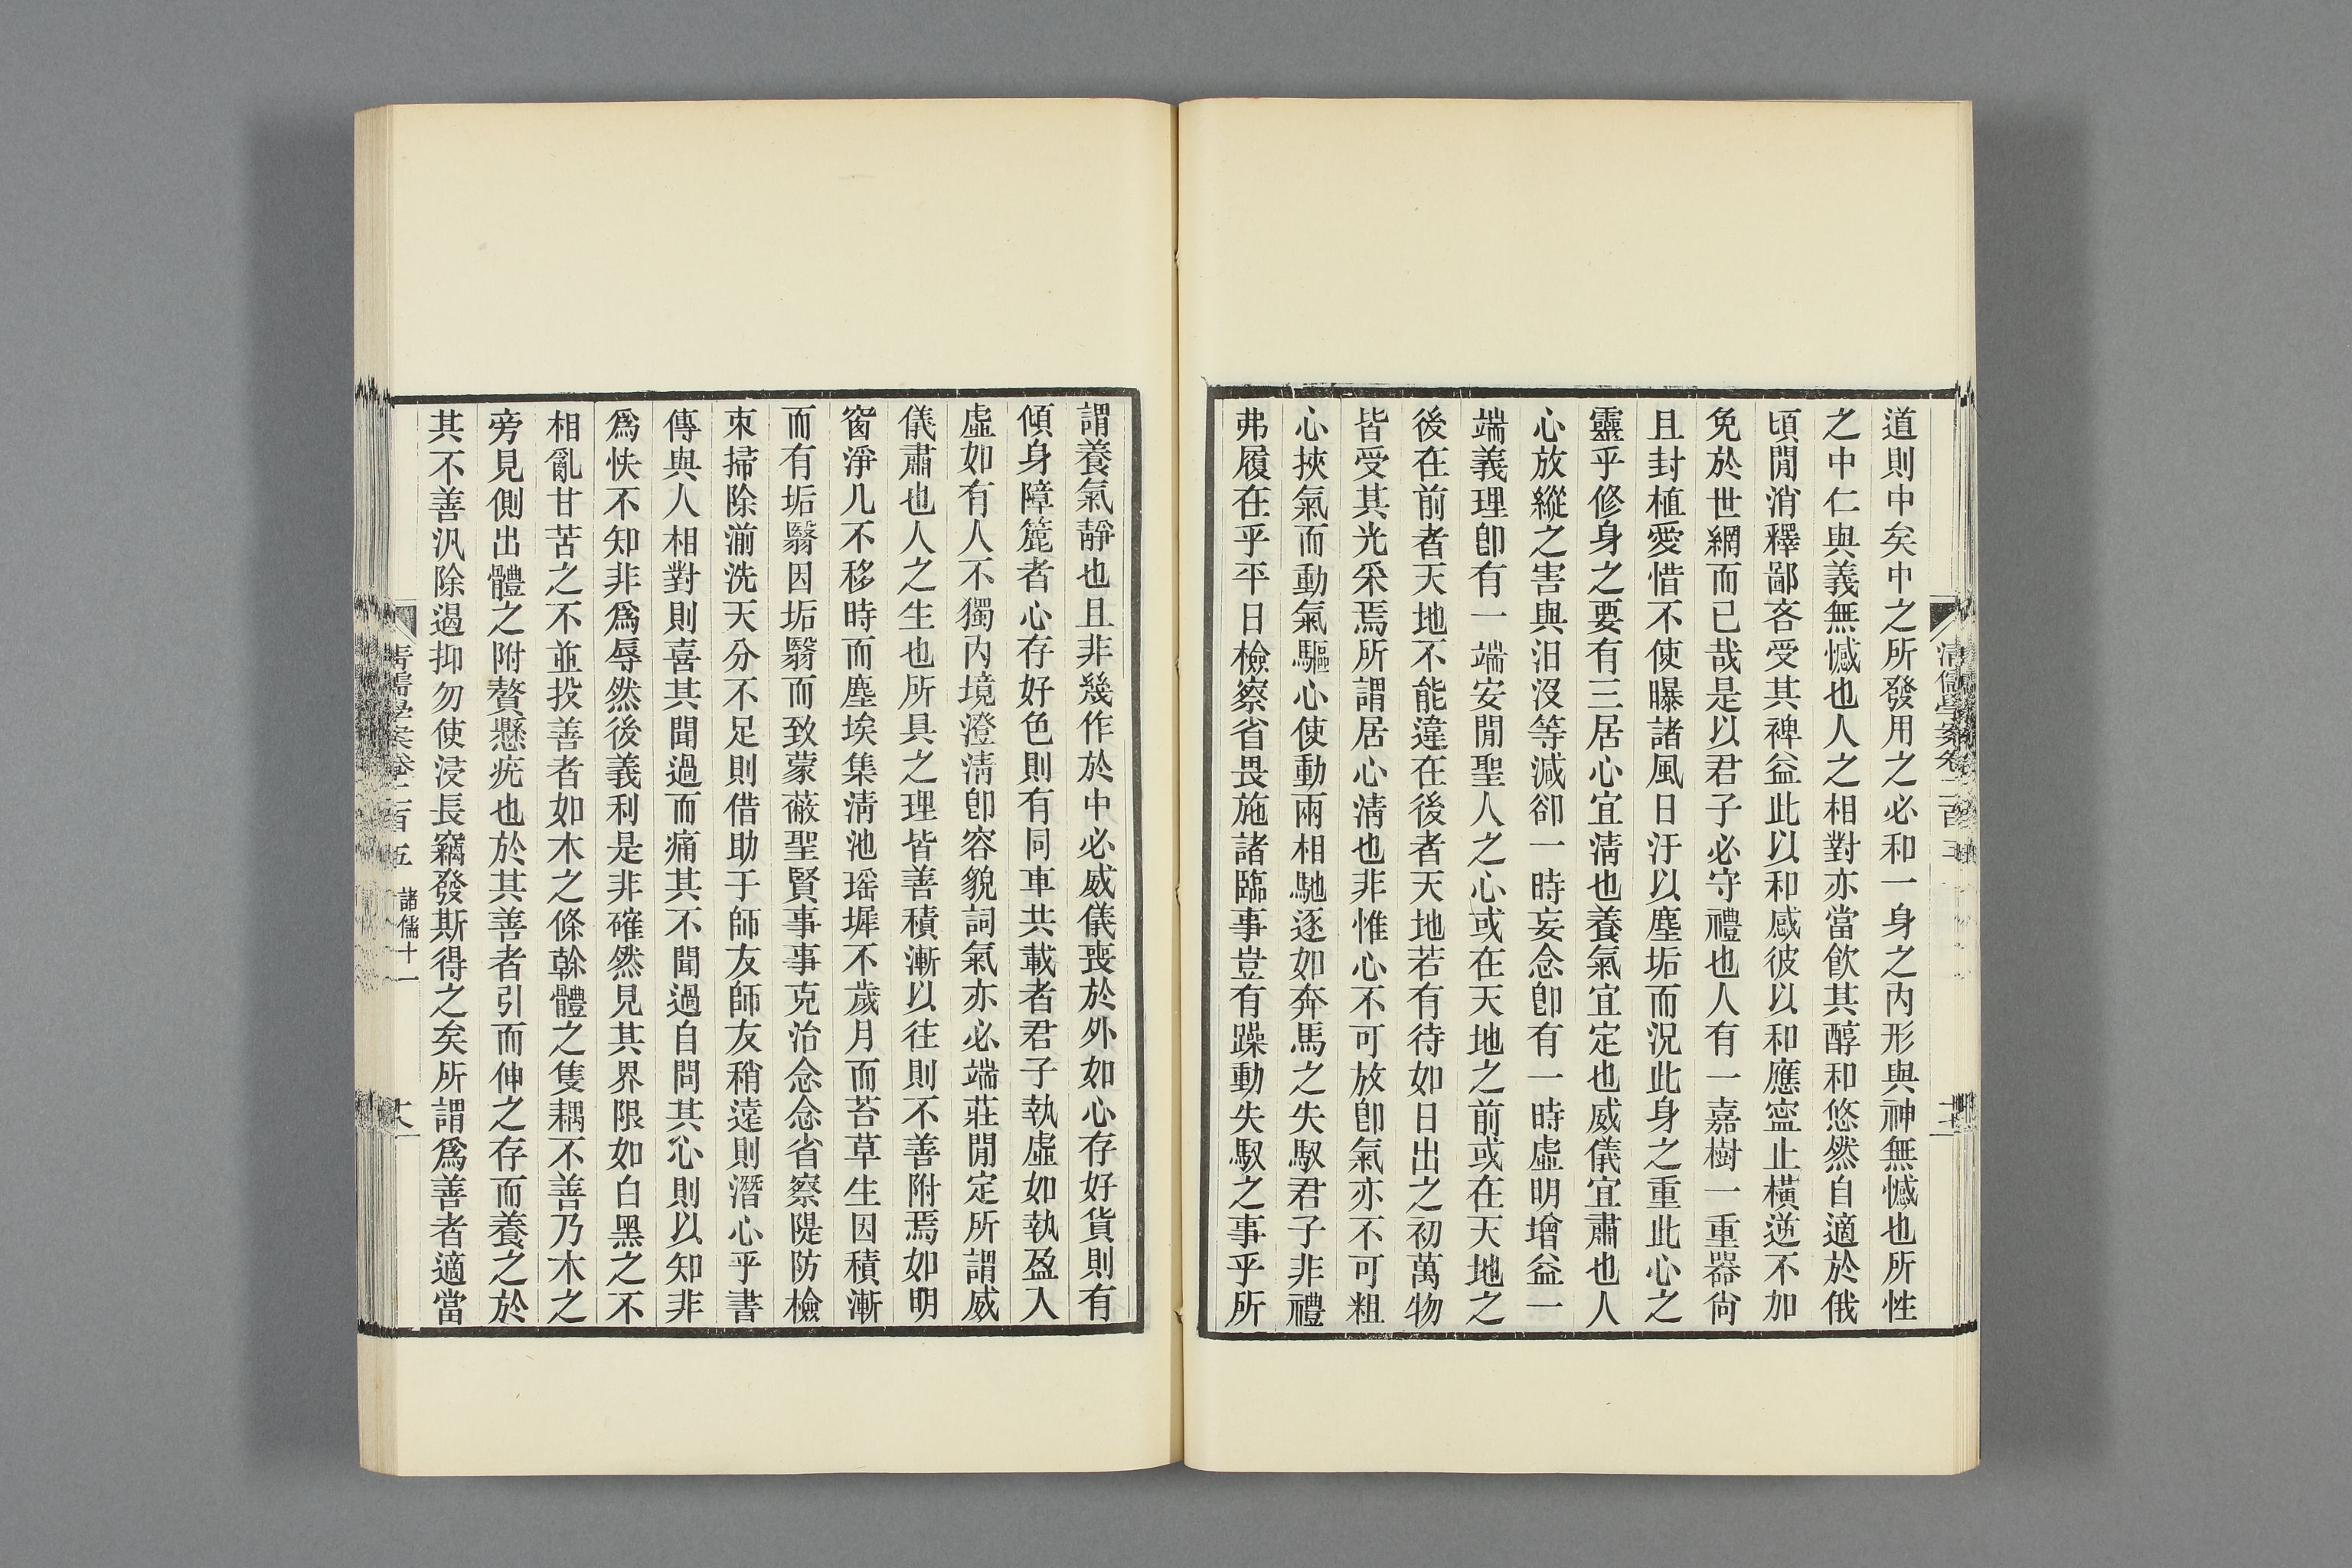 道則中矣中之所發用之必和一身之內形與神無憾也所性
之中仁與義無憾也人之相對亦當飲其醇和悠然自適於俄
頃閒消釋鄙吝受其裨益此以和感彼以和應寍止橫逆不加
免於世網而已哉是以君子必守禮也人有一嘉樹一重器尙
且封植愛惜不使曝諸風日汙以塵垢而況此身之重此心之
靈乎修身之要有三居心宜淸也養氣宜定也威儀宜肅也人
心放縱之害與汨沒等減卻一時妄念卽有一時虛明增益一
端義理卽有一端安閒聖人之心或在天地之前或在天地之
後在前者天地不能違在後者天地若有待如日出之初萬物
皆受其光采焉所謂居心淸也非惟心不可放卽氣亦不可粗
心挾氣而動氣驅心使動兩相馳逐如奔馬之失馭君子非禮
弗履在乎平日檢察省畏施諸臨事豈有躁動失馭之事乎所
謂養氣靜也且非幾作於中必威儀喪於外如心存好貨則有
傾身障簏者心存好色則有同車共載者君子執虛如執盈入
虛如有人不獨內境澄淸卽容貌詞氣亦必端莊閒定所謂威
儀肅也人之生也所具之理皆善積漸以往則不善附焉如明
窗淨几不移時而塵埃集淸池瑤墀不歲月而苔草生因積漸
而有垢翳因垢翳而致蒙蔽聖賢事事克治念念省察隄防檢
束掃除湔洗天分不足則借助于師友師友稍遠則潛心乎書
傳與人相對則喜其聞過而痛其不聞過自問其心則以知非
爲快不知非爲辱然後義利是非確然見其界限如白黑之不
相亂甘苦之不並投善者如木之條榦體之隻耦不善乃木之
旁見側出體之附贅懸疣也於其善者引而伸之存而養之於
其不善汎除遏抑勿使浸長竊發斯得之矣所謂爲善者適當
清儒學案卷二百五 諸儒十一